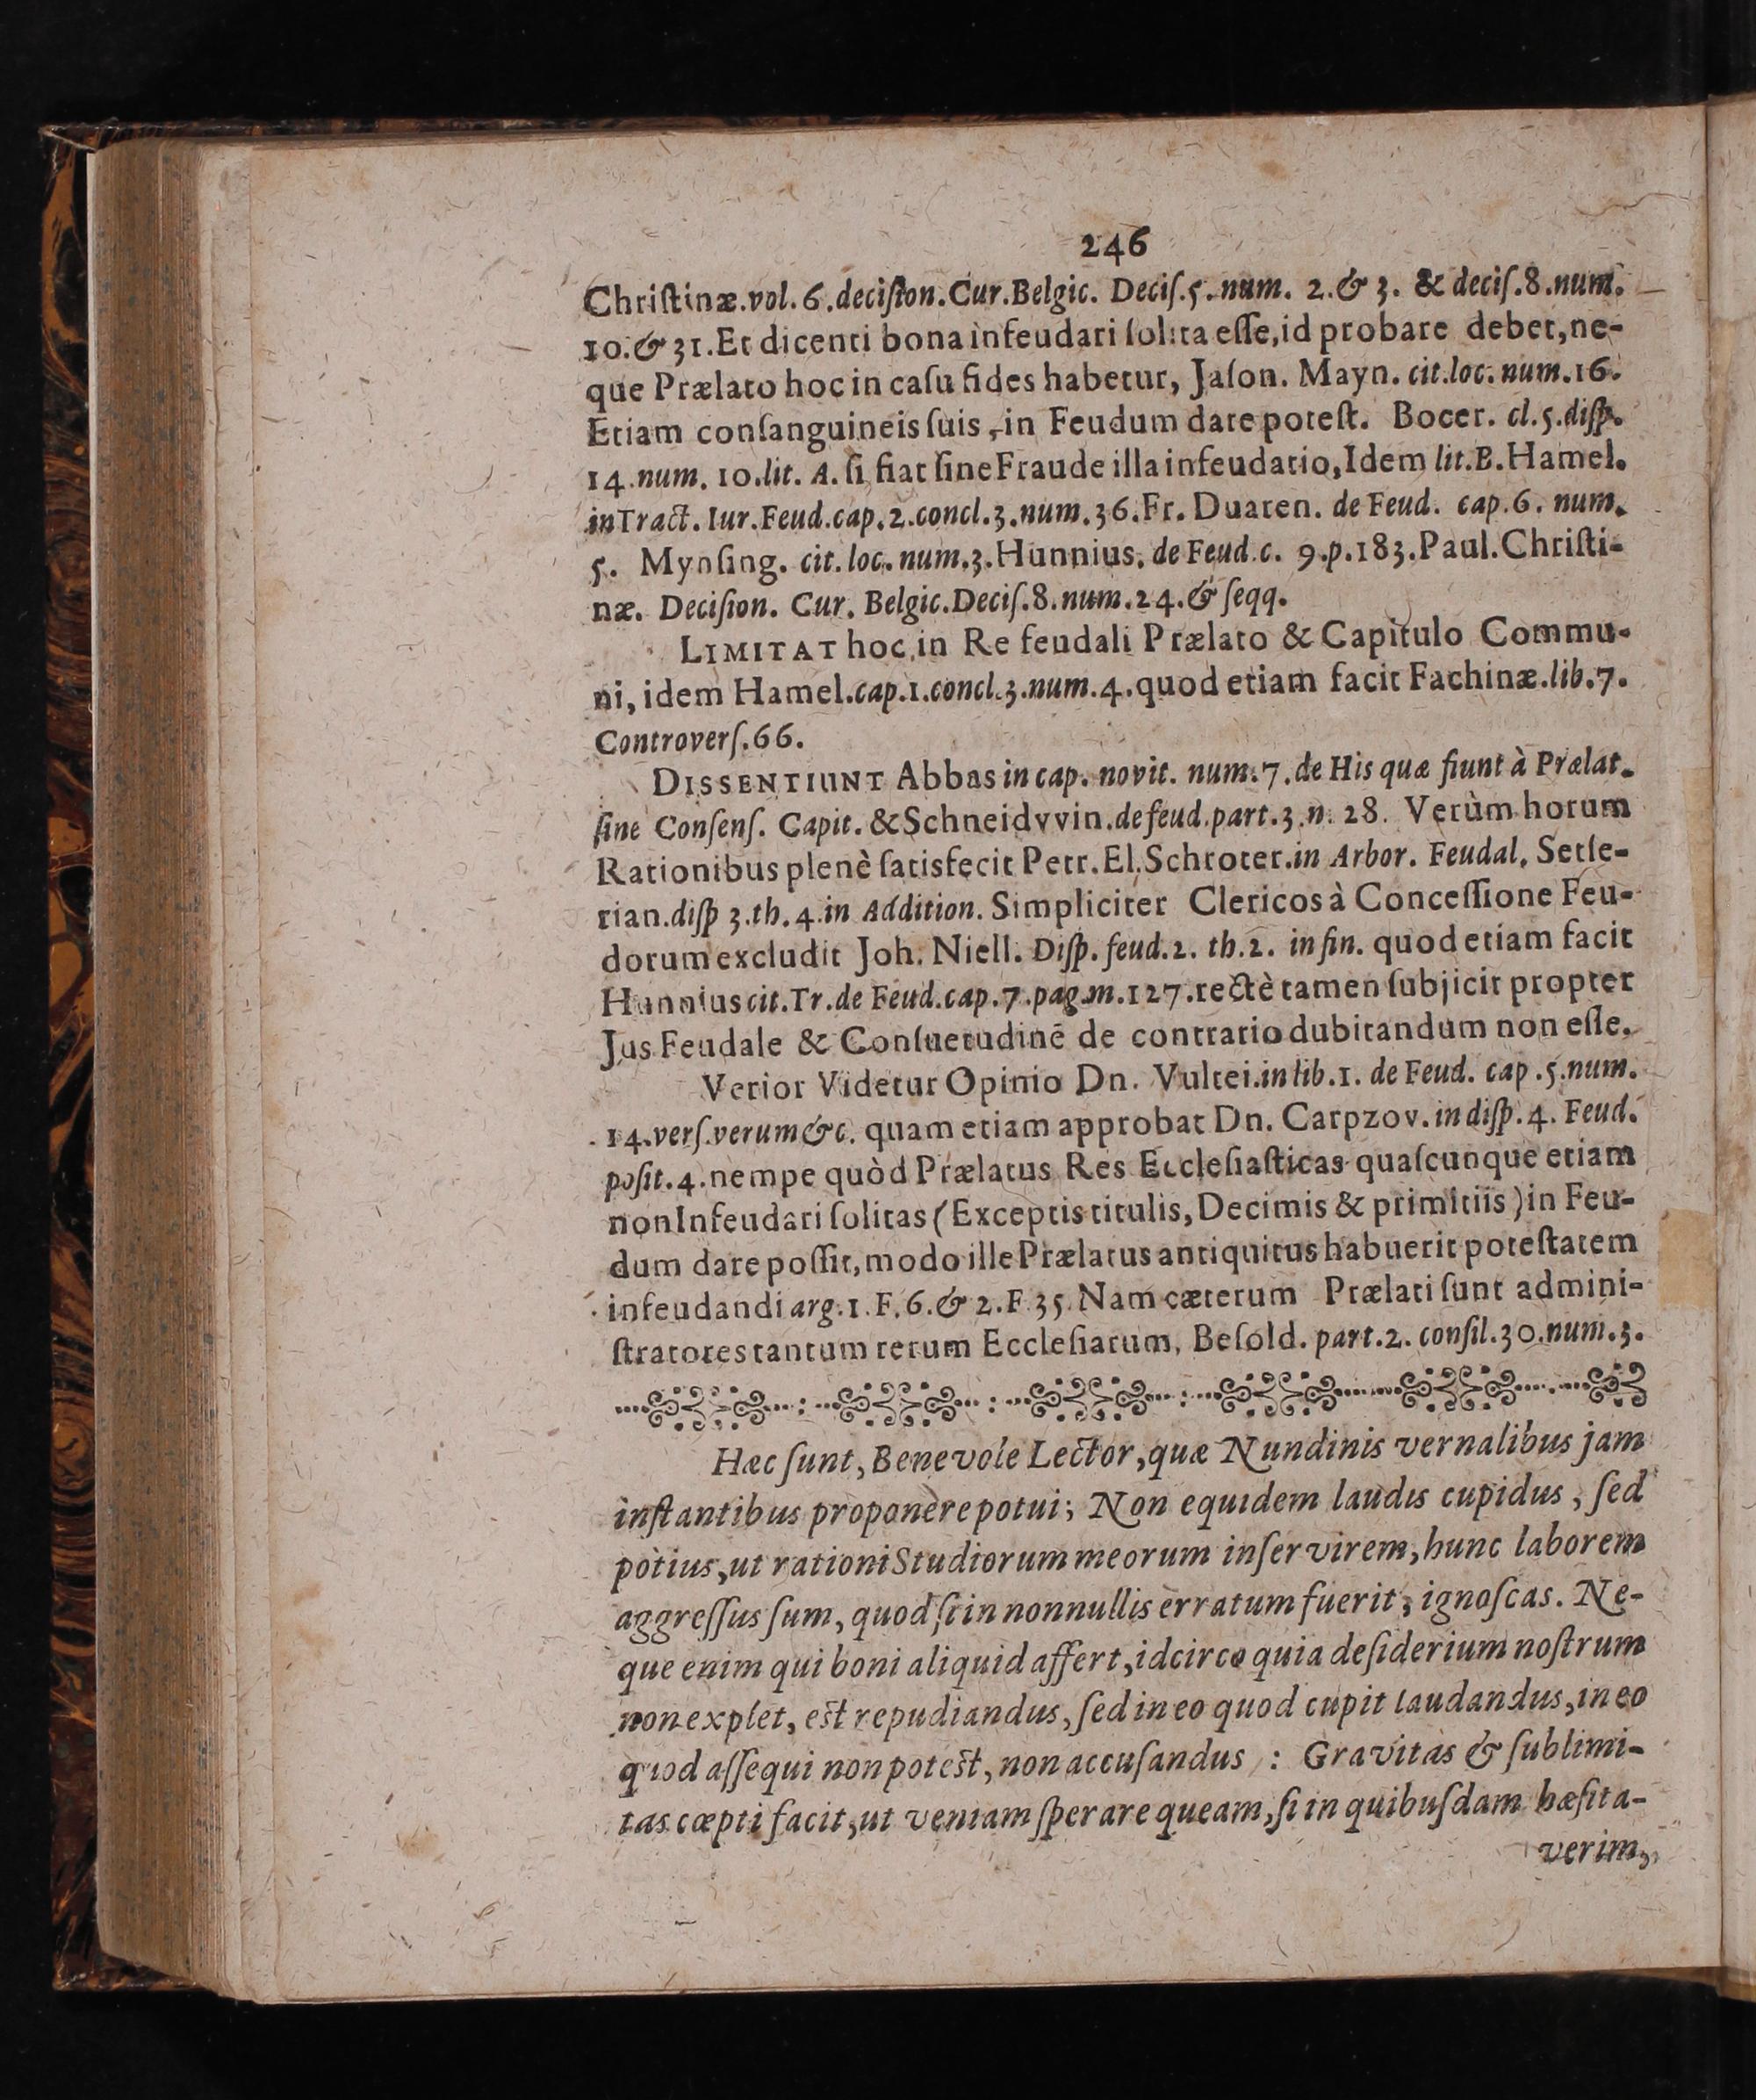 246
Chriſtinæ.vol.6.deciſion.Cur.Belgic. Deciſ.5.num. 2.& 3. & deciſ.8.num.
10.& 31.Et dicenti bona infeudari ſolita eſſe,id probare debet,ne-
que Prælato hoc in caſu fides habetur, Jaſon. Mayn. cit.loc.num.16.
Etiam conſanguineis ſuis, in Feudum dare poteſt. Bocer. cl.5.diſp.
14.num. 10.lit. A. ſi fiat ſine Fraude illa infeudatio,Idem lit.B.Hamel.
in Tract. Iur.Feud.cap.2.concl.3.num.36.Fr. Duaren. de Feud. cap.6. num.
5. Mynſing. cit. loc. num.3.Hunnius. de Feud.c. 9.p.183.Paul.Chriſti-
næ. Deciſion. Cur. Belgic.Deciſ.8.num.24.& ſeqq.
LIMITAT hoc in Re feudali Prælato & Capitulo Commu-
ni, idem Hamel.cap.1.concl.3.num.4.quod etiam facit Fachinæ.lib.7.
Controverſ.66.
DISSENTIUNT Abbas in cap. novit. num.7.de His quæ fiunt à Prælat.
ſine Conſenſ. Capit. & Schneidvvin.de feud.part.3.n. 28. Verùm horum
Rationibus plenè ſatisfecit Petr.El.Schroter.in Arbor. Feudal. Setſe-
rian.diſp 3.th.4.in Addition. Simpliciter Clericos à Conceſſione Feu-
dorum excludit Joh. Niell. Diſp. feud.2. th.2. in fin. quod etiam facit
Hunnius cit.Tr.de Feud.cap.7.pag.m.127.rectè tamen ſubjicit propter
Jus Feudale & Conſuetudinē de contrario dubitandum non eſſe.
Verior Videtur Opinio Dn. Vultei.in lib.1. de Feud. cap.5.num.
14.verſ.verum &c. quam etiam approbat Dn. Carpzov.in diſp.4. Feud.
poſit.4.nempe quòd Prælatus Res Eccleſiaſticas quaſcunque etiam
non Infeudari ſolitas (Exceptis titulis, Decimis & primitiis) in Feu-
dum dare poſſit, modo ille Prælatus antiquitus habuerit poteſtatem
infeudandi arg.1.F.6.& 2.F 35.Nam cæterum Prælati ſunt admini-
ſtratores tantum rerum Eccleſiarum, Beſold. part.2. conſil.30.num.3.
Hæc ſunt, Benevole Lector, quæ Nundinis vernalibus jam
inſtantibus proponere potui; Non equidem laudis cupidus, ſed
potius, ut rationi Studiorum meorum inſervirem, hunc laborem
aggreſſus ſum, quod ſi in nonnullis erratum fuerit; ignoſcas. Ne-
que enim qui boni aliquid affert, idcirco quia deſiderium noſtrum
non explet, eſt repudiandus, ſed in eo quod cupit laudandus, in eo
quod aſſequi non poteſt, non accuſandus : Gravitas & ſublimi-
tas cæpti facit, ut veniam ſperare queam, ſi in quibuſdam hæſita-
verim,